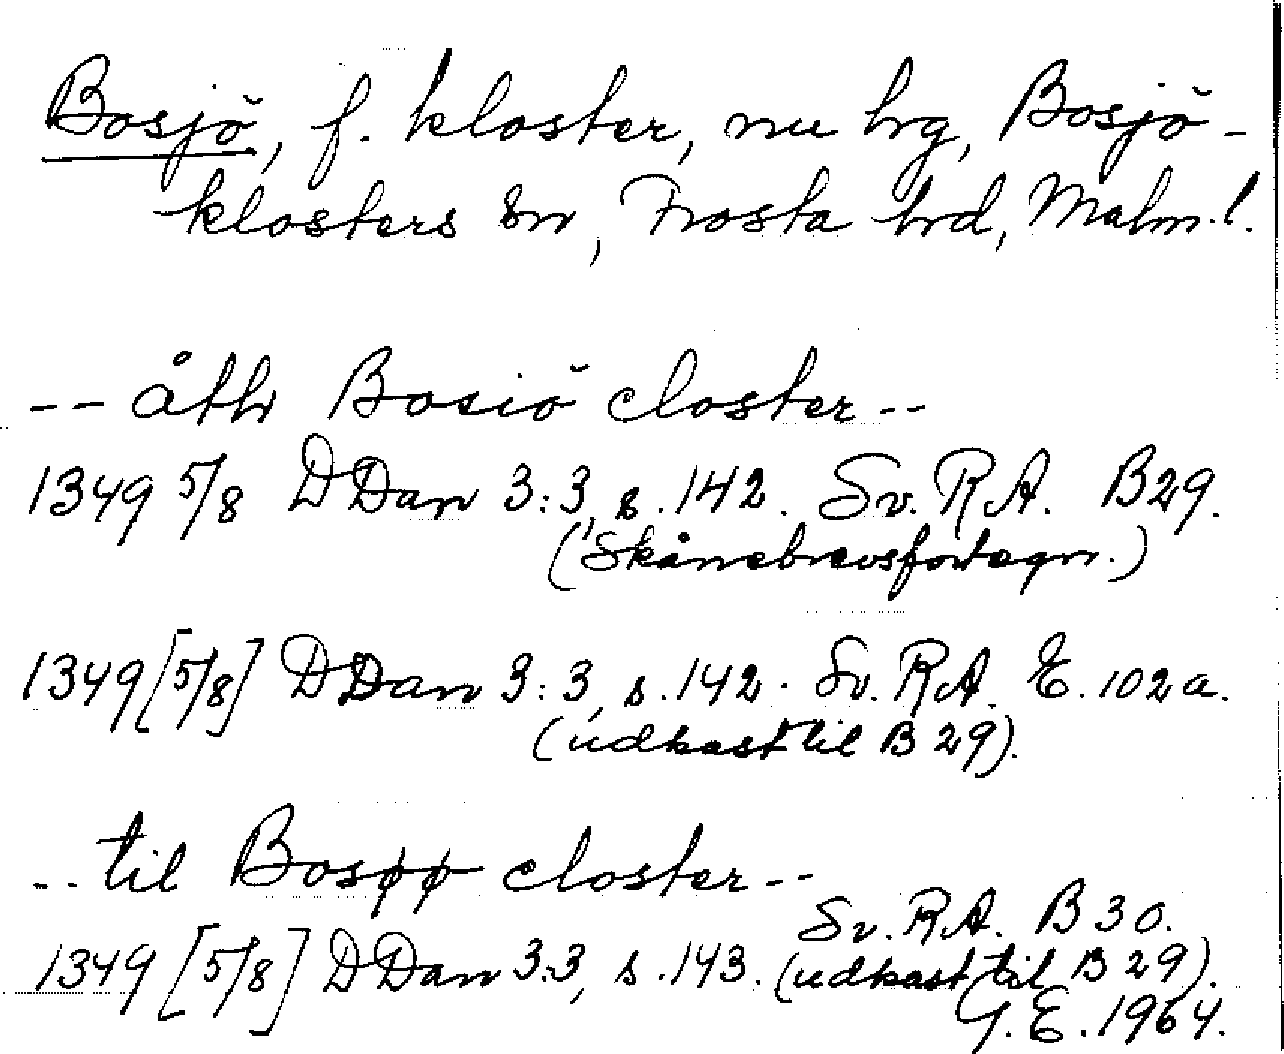 Bosjö, f. kloster, nu hg, Bosjö-
klosters sn, Frosta hd, Malm. l.
-- åth Bosiö closter --
1349 5/8 DDan 3:3, s. 142. Sv. RA. B29.
(Skånebrevsfortegn.)
1349 [5/8] DDan 3:3, s. 142. Sv. RA. E. 102a.
(udkast til B 29).
-- til Bosøø closter --
Sv. RA. B 30.
1349 [5/8] DDan 3:3, s. 143. (udkast til B 29).
G.E. 1964.